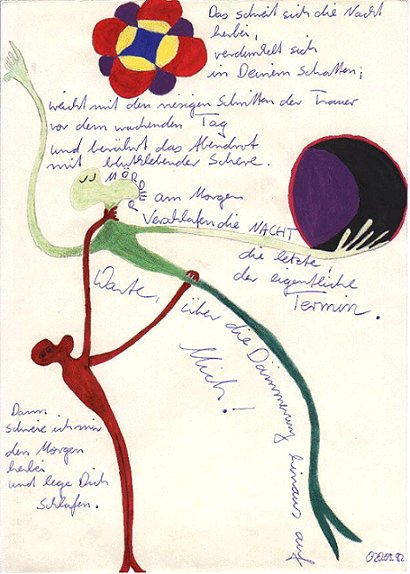 Da schreit sich die Nacht
herbei,
verdunkelt sich
in Deinem Schatten;
weicht mit den riesigen Schritten der Trauer
vor dem wachenden Tag
und berührt das Abendrot
mit blutklebender Schere.
MÖRDER
am Morgen
Verschlafen die NACHT
die letzte,
der eigentliche
Termin.
Warte, über die Dämmerung hinaus auf
Mich!
Dann
schreie ich mir
den Morgen
herbei
und lege Dich
schlafen.